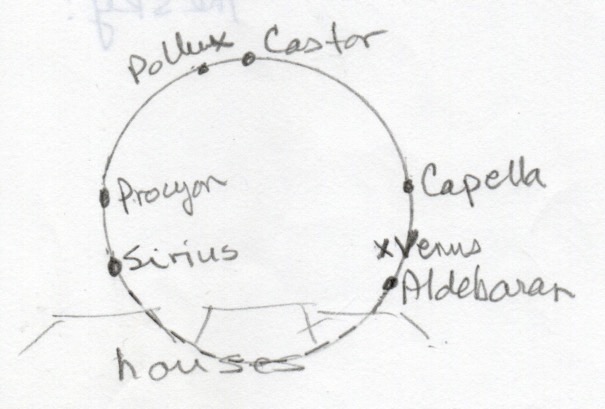 Pollux Castor
Procyon
Capella
Sirius
x Venus
Aldebaran
houses